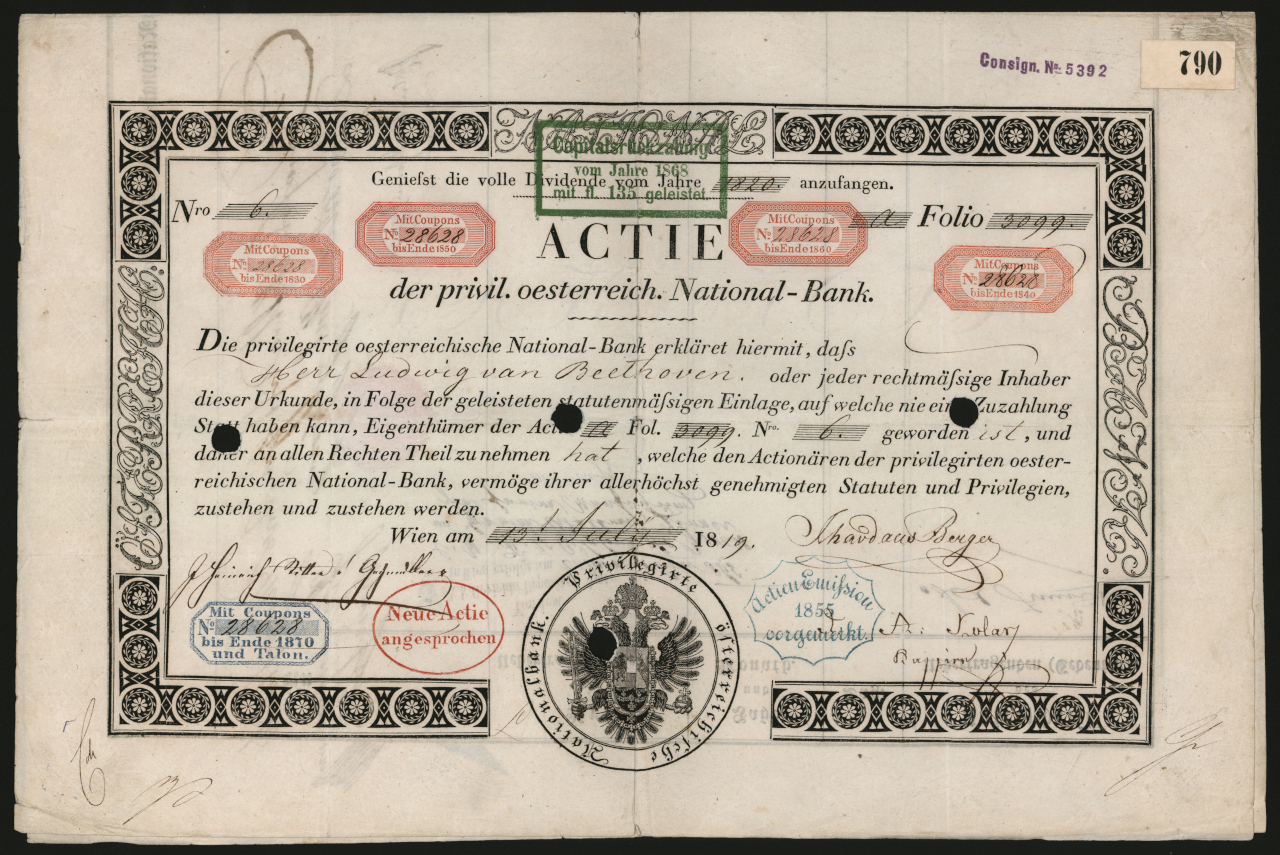 790
Consign. No. 5392
NATIONAL
Capitalsrückzahlung
vom Jahre 1868
mit fl. 135 geleistet
Geniefst die volle Dividende vom Jahre 1820. anzufangen.
Nro 6.
a Folio 3099.
Mit Coupons
No. 28628
bis Ende 1830
Mit Coupons
No. 28628
bis Ende 1850
Mit Coupons
No. 28628
bis Ende 1860
Mit Coupons
No. 28628
bis Ende 1840
ACTIE
der privil. oesterreich. National-Bank.
Die privilegirte oesterreichische National-Bank erkläret hiermit, dafs
Herr Ludwig van Beethoven. oder jeder rechtmäfsige Inhaber
dieser Urkunde, in Folge der geleisteten statutenmäfsigen Einlage, auf welche nie eine Zuzahlung
Statt haben kann, Eigenthümer der Actie a Fol. 3099. Nro. 6. geworden ist, und
daher an allen Rechten Theil zu nehmen hat, welche den Actionären der privilegirten oester-
reichischen National-Bank, vermöge ihrer allerhöchst genehmigten Statuten und Privilegien,
zustehen und zustehen werden.
Wien am 13t July 1819.
Mit Coupons
No. 28628
bis Ende 1870
und Talon.
Neue Actie
angesprochen
Privilegirte österreichische Nationalbank.
Actien Emifsion
1855
vorgemerkt.
OESTERREICHISCHE
BANK.